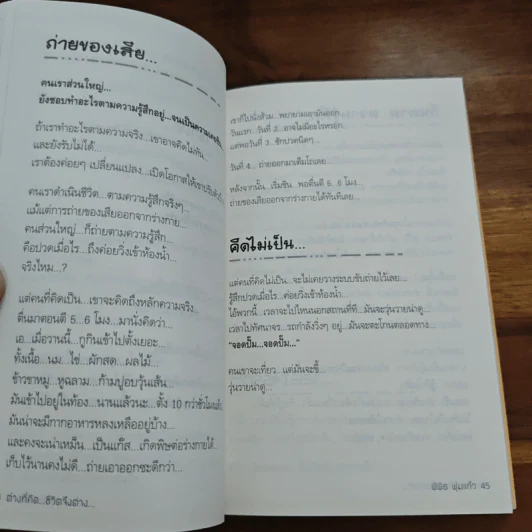 ถ่ายของเสีย...
คนเราส่วนใหญ่...
ยังชอบทำอะไรตามความรู้สึกอยู่...จนเป็นความเคยชิน
ถ้าเราทำอะไรตามความจริง...เขาอาจคิดไม่ทัน...
และยังรับไม่ได้...
เราต้องค่อยๆ เปลี่ยนแปลง...เปิดโอกาสให้เขา
คนเราดำเนินชีวิต...ตามความรู้สึกจริงๆ...
แม้แต่การถ่ายของเสียออกจากร่างกาย...
คนส่วนใหญ่...ก็ถ่ายตามความรู้สึก...
คือปวดเมื่อไร...ถึงค่อยวิ่งเข้าห้องน้ำ...
จริงไหม...?
แต่คนที่คิดเป็น...เขาจะคิดถึงหลักความจริง...
ตื่นมาตอนตี 5...6 โมง...มานั่งคิดว่า...
เอ...เมื่อวานนี้...กูกินเข้าไปตั้งเยอะ...
ทั้งเนื้อ...นม...ไข่...ผักสด...ผลไม้...
ข้าวขาหมู...หูฉลาม...ก้ามปูอบวุ้นเส้น...
มันเข้าไปอยู่ในท้อง...นานแล้วนะ...ตั้ง 10 กว่าชั่วโมงแล้ว
มันน่าจะมีกากอาหารหลงเหลืออยู่บ้าง...
และคงจะเน่าเหม็น...เป็นแก๊ส...เกิดพิษต่อร่างกายได้...
เก็บไว้นานคงไม่ดี...ถ่ายเอาออกซะดีกว่า...
ต่างที่คิด...ชีวิตจึงต่าง...
เขาก็ไปนั่งส้วม...พยายามเอามันออก
วันแรก...วันที่ 2...อาจไม่มีอะไรหรอก...
แต่พอวันที่ 3...ชักปวดนิดๆ...
วันที่ 4...ถ่ายออกมาเต็มโถเลย...
หลังจากนั้น...เริ่มชิน...พอตื่นตี 5...6 โมง...
ถ่ายของเสียออกจากร่างกายได้ทันทีเลย...
คิดไม่เป็น...
แต่คนที่คิดไม่เป็น...จะไม่เคยวางระบบขับถ่ายไว้เลย...
รู้สึกปวดเมื่อไร...ค่อยวิ่งเข้าห้องน้ำ...
ไอ้พวกนี้...เวลาจะไปไหนนอกสถานที่ที...มันจะวุ่นวายน่าดู...
เวลาไปทัศนาจร...รถกำลังวิ่งๆ อยู่...มันจะตะโกนตลอดทาง...
“จอดปั๊ม...จอดปั๊ม...”
คนเขาจะเที่ยว...แต่มันจะขี้...
วุ่นวายน่าดู...
พิสิธ พุ่มแก้ว 45